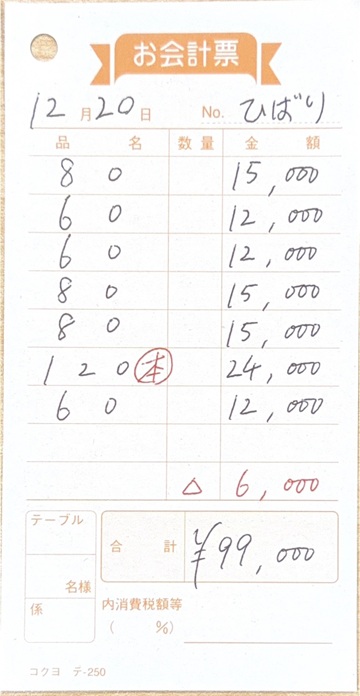 お会計票
12月20日 No. ひばり
品名 数量 金額
80 15,000
60 12,000
60 12,000
80 15,000
80 15,000
120 本 24,000
60 12,000
△ 6,000
テーブル
名様
係
合計 ¥99,000
内消費税額等
( %)
コクヨ テ-250